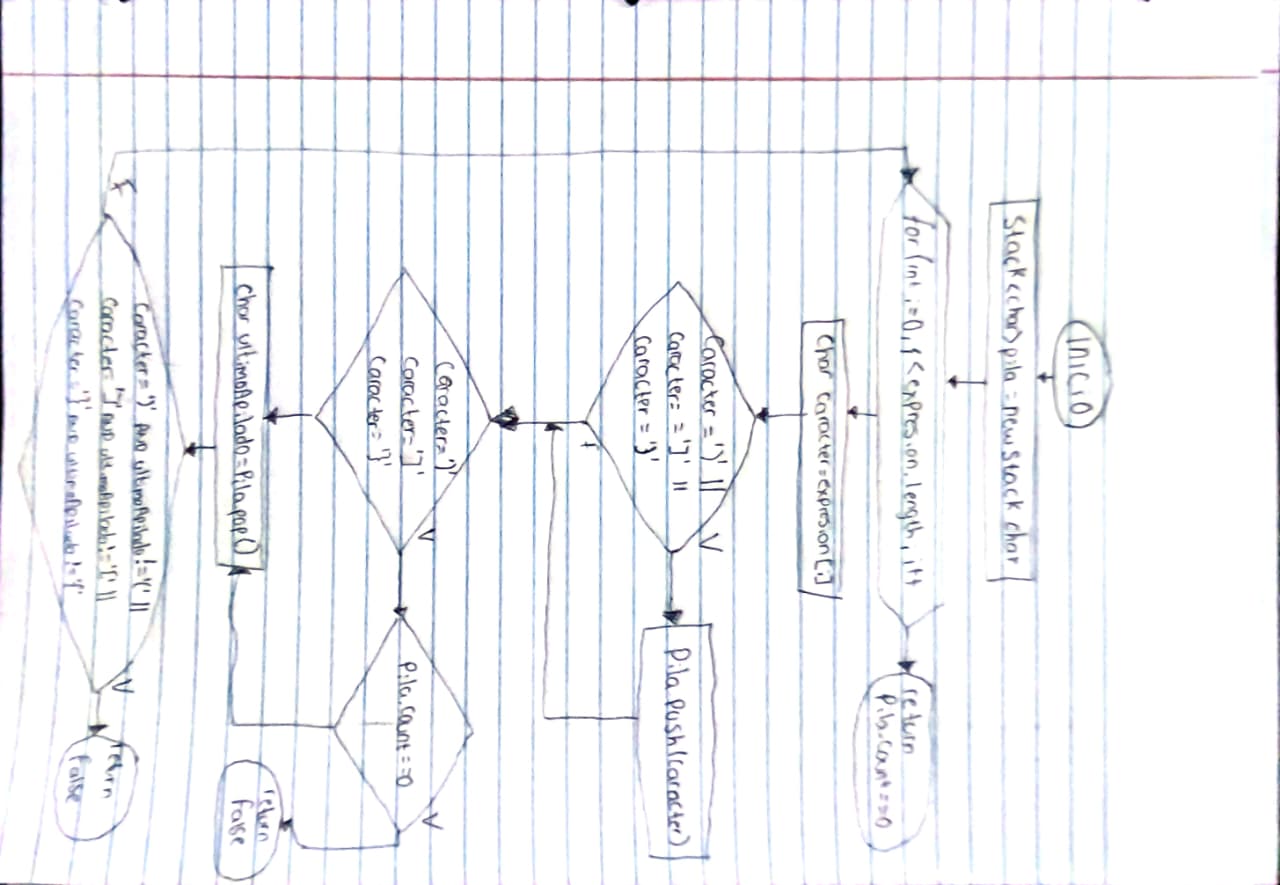 INICIO
Stack<char>pila = new Stack char
for(int i=0, i<expresion.length, i++
return
Pila.count==0
Char caracter=expresion[i]
Caracter = ')' ||
caracter= ']' ||
caracter = '}'
V
F
Pila push(caracter)
Caracter=')'
Caracter=']'
Caracter='}'
V
Pila.count==0
V
return
False
char ultimoApilado=Pila.pop()
Caracter=')' AND ultimoApilado!='(' ||
Caracter=']' AND ultimoApilado!='[' ||
Caracter='}' AND ultimoApilado!='{'
F
V
return
False